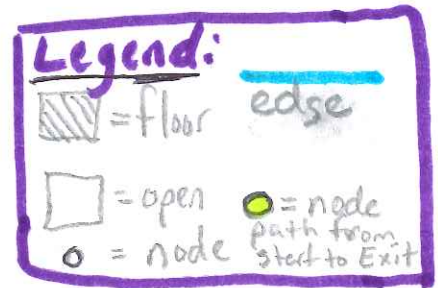 Legend:
= floor
edge
= open
= node
= node
path from
start to Exit